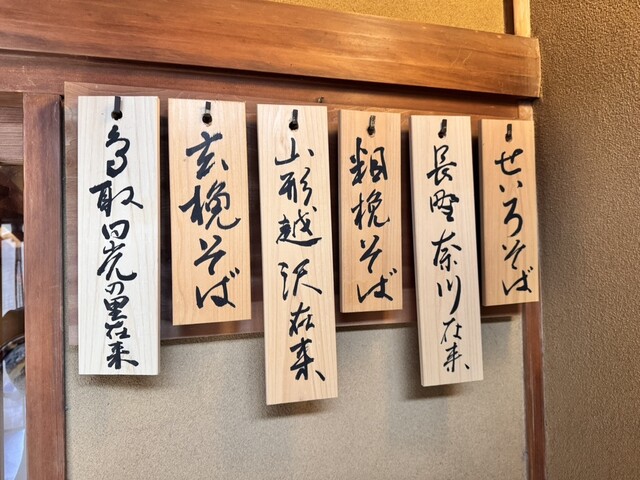 せいろそば
長野奈川在来
粗挽そば
山形越沢在来
玄挽そば
鳥取日光の里在来